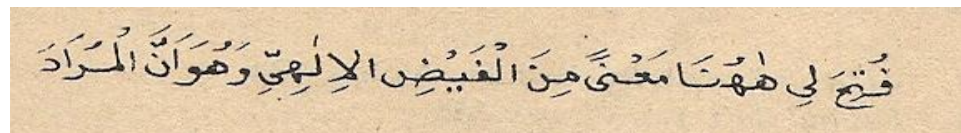 فُتِحَ لِي هٰهُنَا مَعْنًى مِنَ الْفَيْضِ الاِلٰهِيِّ وَهُوَ اَنَّ الْمُرَادَ